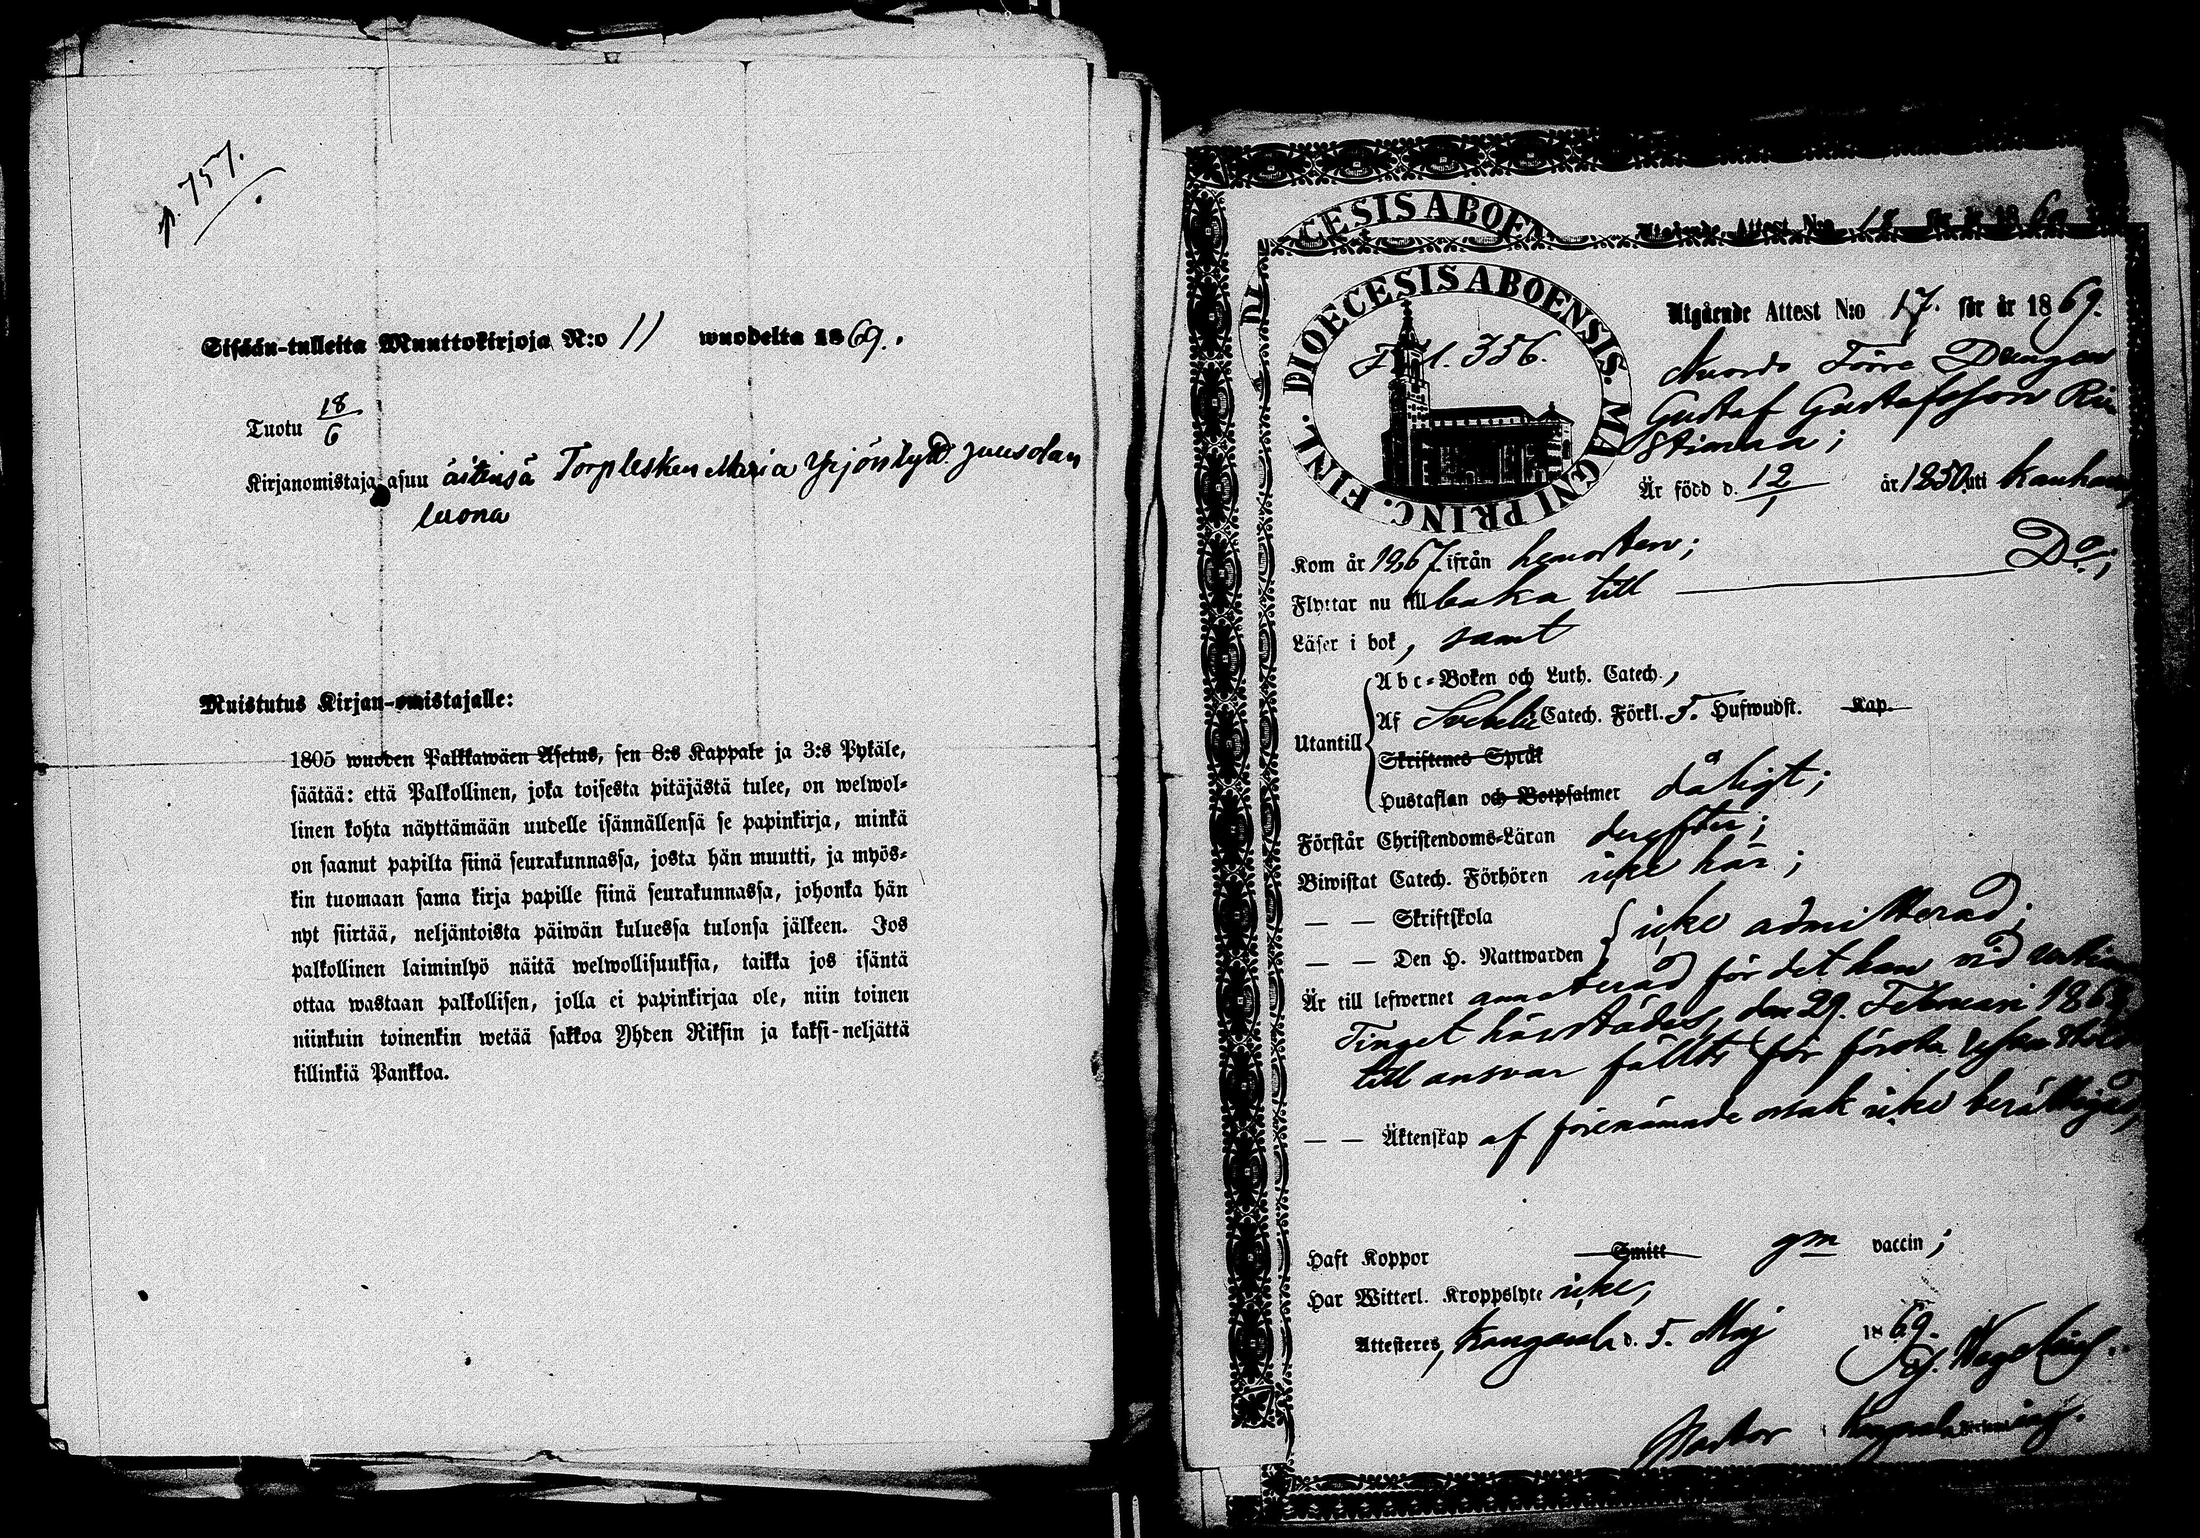 p. 757.
Sisään-tulleita Muuttokirjoja N:o 11 wuodelta 1869.
Tuotu 18/6
Kirjanomistaja asuu äitinsä Torplesken Maria Yrjöntyt. Juusolan
luona
Muistutus Kirjan-omistajalle:
1805 wuoden Palkkawäen Asetus, sen 8:s Kappale ja 3:s Pykäle,
säätää: että Palkollinen, joka toisesta pitäjästä tulee, on welwol-
linen kohta näyttämään uudelle isännällensä se papinkirja, minkä
on saanut papilta siinä seurakunnassa, josta hän muutti, ja myös-
kin tuomaan sama kirja papille siinä seurakunnassa, johonka hän
nyt siirtää, neljäntoista päiwän kuluessa tulonsa jälkeen. Jos
palkollinen laiminlyö näitä welwollisuuksia, taikka jos isäntä
ottaa wastaan palkollisen, jolla ei papinkirjaa ole, niin toinen
niinkuin toinenkin wetää sakkoa Yhden Riksin ja kaksi-neljättä
killinkiä Pankkoa.
CESIS ABOEN
Utgående Attest N:o 18 för år 1869
DI
DIOECESIS ABOENSIS. MAGNI PRINC. FINL.
Fol. 356.
Utgående Attest N:o 17. för år 1869.
Drengen
Gustaf Gustafsson
Är född d. 12/1 år 1850 uti
Kom år 1867 ifrån
D:o;
Flyttar nu till baka till
Läser i bok, samt
Abc-Boken och Luth. Catech.,
Af Svebeli Catech. Förkl. 5. Hufwudst. Kap.
Utantill
Skriftenes Språk
Hustaflan och Botpsalmer dåligt;
Förstår Christendoms-Läran derefter;
Biwistat Catech. Förhören icke här;
— — Skriftskola
icke admitterad;
— — Den H. Nattwarden
Är till lefwernet annoterad för det han vid
Tinget härstädes den 29. Februari 1868
till ansvar fällts för första
— — Äktenskap af förenämnde orsak icke berättigad,
Haft Koppor Smitt gm vaccin;
Har Witterl. Kroppslyte icke;
Attesteres, Kangasala d. 5. Maj 1869.
Wegelius.
Pastor